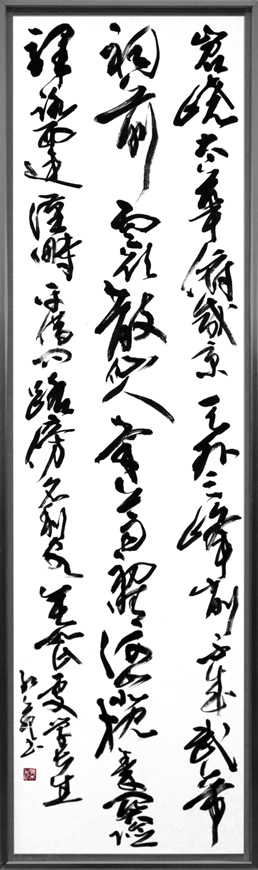 岧嶢太華俯咸京天外三峰削不成武帝
祠前雲欲散仙人掌上雨初晴河山北枕秦關險
驛路西連漢畤平借問路傍名利客無如此處學長生